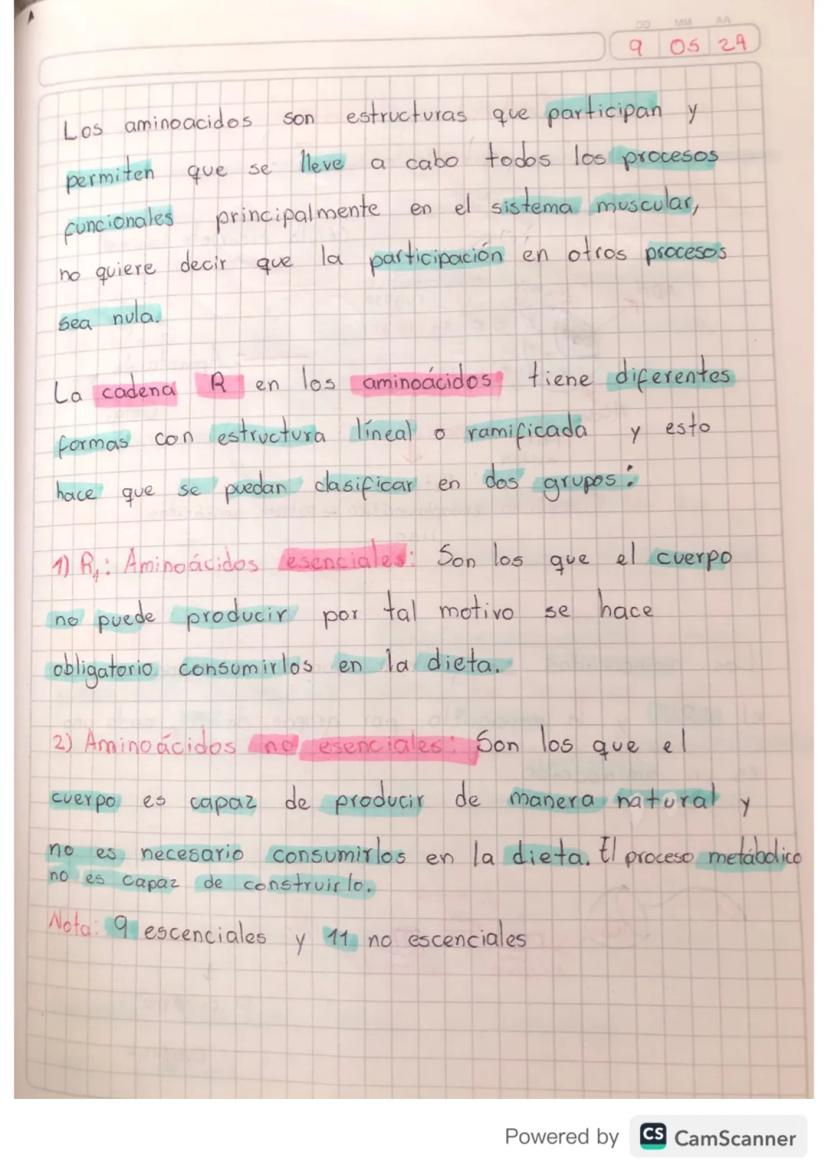 DD MM AA
9 05 24
Los aminoacidos son estructuras que participan y
permiten que se lleve a cabo todos los procesos
funcionales principalmente en el sistema muscular,
no quiere decir que la participación en otros procesos
sea nula.
La cadena R en los aminoácidos tiene diferentes
formas con estructura líneal o ramificada y esto
hace que se puedan clasificar en dos grupos:
1) R1: Aminoácidos esenciales: Son los que el cuerpo
no puede producir por tal motivo se hace
obligatorio consumirlos en la dieta.
2) Aminoácidos no esenciales: Son los que el
cuerpo es capaz de producir de manera natural y
no es necesario consumirlos en la dieta. El proceso metábolico
no es capaz de construirlo.
Nota: 9 escenciales y 11 no escenciales
Powered by CS CamScanner